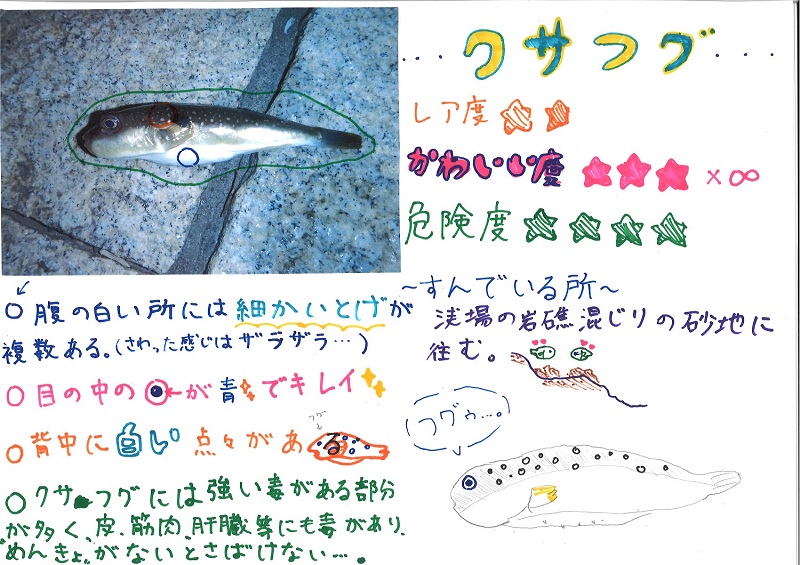 …クサフグ…
レア度
かわいい度 ×∞
危険度
~すんでいる所~
浅場の岩礁混じりの砂地に
住む。
○腹の白い所には細かいとげが
複数ある。(さわった感じはザラザラ…)
○目の中の が青でキレイ
○背中に白い点々がある
フグ
○クサフグには強い毒がある部分
が多く、皮、筋肉、肝臓等にも毒があり、
"めんきょ"がないとさばけない…。
フグゥ…。